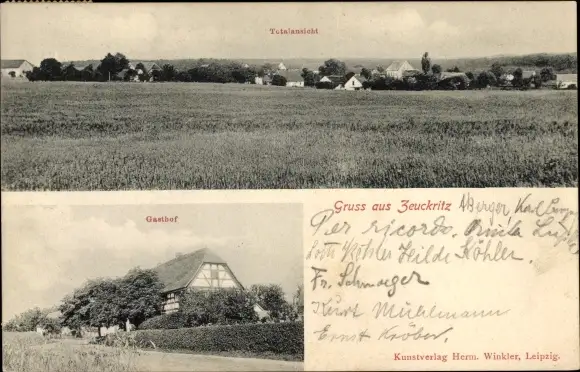 Totalansicht
Gasthof
Gruss aus Zeuckritz
Berger Karl
Per ricordo.
Köhler Hilde Köhler.
Fr.
Kurt Mühlmann
Ernst Kröber.
Kunstverlag Herm. Winkler, Leipzig.